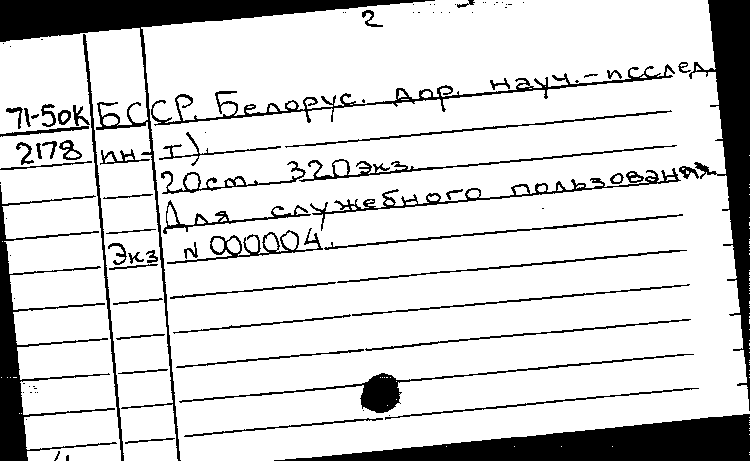 2
71-50К БССР. Белорус. дор. науч.-исслед.
2178 ин-т).
20ст. 320экз.
Для служебного пользования.
Экз N 000004.